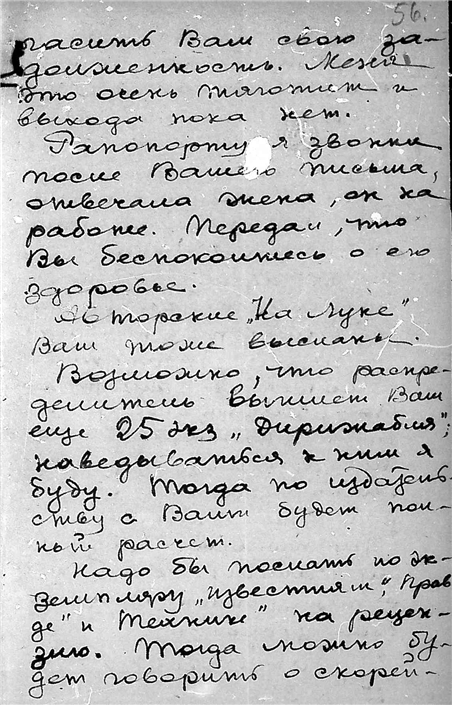 56.
гасить Вам свою за-
долженность. Меня
это очень тяготит и
выхода пока нет.
Рапопорту я звонил
после Вашего письма,
отвечала жена, он на
работе. Передал, что
Вы беспокоитесь о его
здоровье.
Авторские „На Луне"
Вам тоже высланы.
Возможно, что распре-
делитель вышлет Вам
еще 25 экз „Дирижабля";
наведываться к ним я
буду. Тогда по издатель-
ству с Вами будет пол-
ный расчет.
Надо бы послать по эк-
земпляру „Известиям", „Прав
де" и Технике" на рецен-
зию. Тогда можно бу-
дет говорить о скорей-